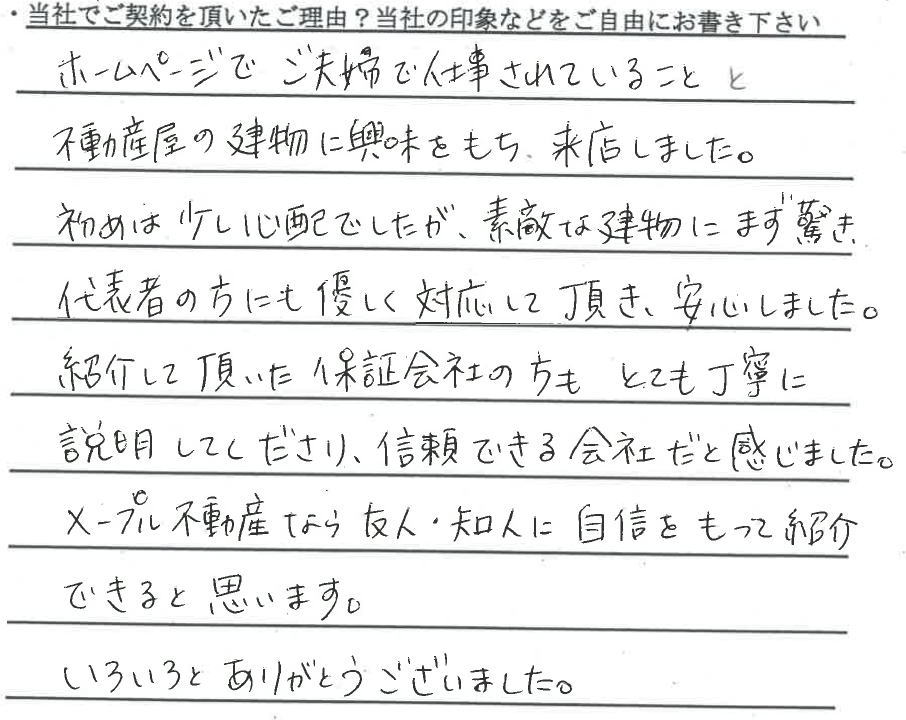 ・当社でご契約を頂いたご理由？当社の印象などをご自由にお書き下さい
ホームページで ご夫婦で仕事されていること と
不動産屋の建物に興味をもち、来店しました。
初めは少し心配でしたが、素敵な建物にまず驚き、
代表者の方にも優しく対応して頂き、安心しました。
紹介して頂いた保証会社の方も とても丁寧に
説明してくださり、信頼できる会社だと感じました。
メープル不動産なら友人・知人に自信をもって紹介
できると思います。
いろいろとありがとうございました。